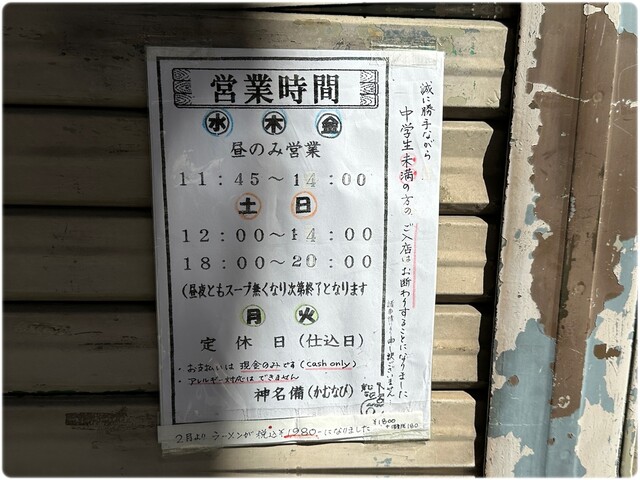 営業時間
水 木 金
昼のみ営業
11:45～14:00
土 日
12:00～14:00
18:00～20:00
(昼夜ともスープ無くなり次第終了となります
月 火
定休日(仕込日)
・お支払いは現金のみです(cash only)
・アレルギー対応はできません
神名備(かむなび)
誠に勝手ながら
中学生未満の方の、ご入店はお断わりすることになりました
申し訳ございません
2月より ラーメンが税込¥1980-になりました
¥1800